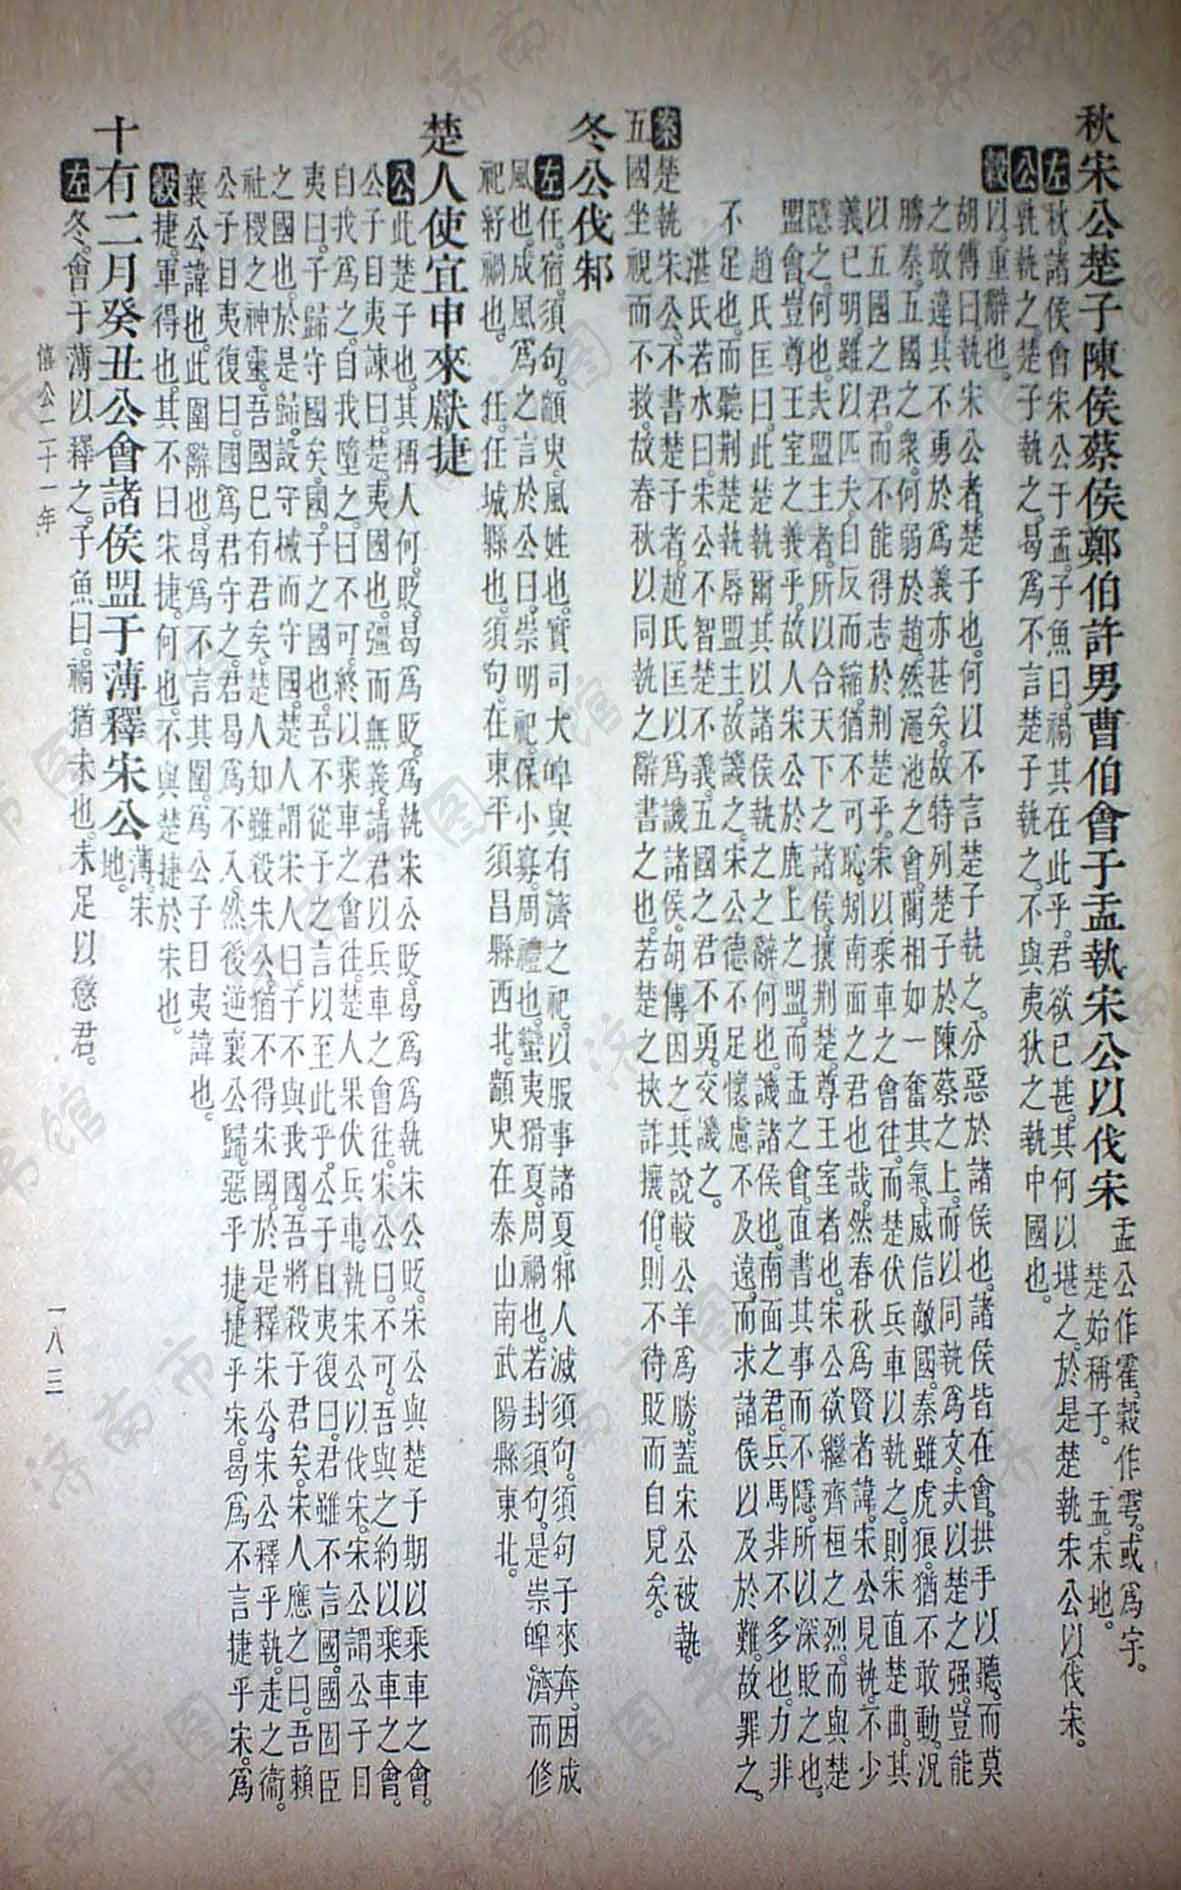 秋宋公楚子陳侯蔡侯鄭伯許男曹伯會于盂執宋公以伐宋盂公作霍。穀作雩。或爲宇。
楚始稱子。 盂。宋地。
左秋。諸侯會宋公于盂。子魚曰。禍其在此乎。君欲已甚。其何以堪之。於是楚執宋公以伐宋。
公孰執之。楚子執之。曷爲不言楚子執之。不與夷狄之執中國也。
穀以。重辭也。
胡傳曰。執宋公者。楚子也。何以不言楚子執之。分惡於諸侯也。諸侯皆在會。拱手以聽。而莫
之敢違。其不勇於爲義亦甚矣。故特列楚子於陳蔡之上。而以同執爲文。夫以楚之强。豈能
勝秦。五國之衆。何弱於趙。然澠池之會。藺相如一奮其氣。威信敵國。秦雖虎狼。猶不敢動。況
以五國之君。而不能得志於荆楚乎。宋以乘車之會往。而楚伏兵車以執之。則宋直楚曲。其
義已明。雖以匹夫。自反而縮。猶不可恥。矧南面之君也哉。然春秋爲賢者諱。宋公見執。不少
隱之。何也。夫盟主者。所以合天下之諸侯。攘荆楚。尊王室者也。宋公欲繼齊桓之烈。而與楚
盟會。豈尊王室之義乎。故人宋公於鹿上之盟。而盂之會。直書其事而不隱。所以深貶之也。
趙氏匡曰。此楚執爾。其以諸侯執之之辭何也。譏諸侯也。南面之君。兵馬非不多也。力非
不足也。而聽荆楚執辱盟主。故譏之。宋公德不足懷。慮不及遠。而求諸侯以及於難。故罪之。
湛氏若水曰。宋公不智。楚不義。五國之君不勇。交譏之。
案楚執宋公。不書楚子者。趙氏匡以爲譏諸侯。胡傳因之。其說較公羊爲勝。蓋宋公被執。
五國坐視而不救。故春秋以同執之辭書之也。若楚之挾詐攘伯。則不待貶而自見矣。
冬公伐邾
左任。宿。須句。顓臾。風姓也。實司大皞與有濟之祀。以服事諸夏。邾人滅須句。須句子來奔。因成
風也。成風爲之言於公曰。崇明祀。保小寡。周禮也。蠻夷猾夏。周禍也。若封須句。是崇皞濟而修
祀紓禍也。 任。任城縣也。須句。在東平須昌縣西北。顓臾在泰山南武陽縣東北。
楚人使宜申來獻捷
公此楚子也。其稱人何。貶。曷爲貶。爲執宋公貶。曷爲爲執宋公貶。宋公與楚子期以乘車之會。
公子目夷諫曰。楚。夷國也。彊而無義。請君以兵車之會往。宋公曰。不可。吾與之約以乘車之會。
自我爲之。自我墮之。曰不可。終以乘車之會往。楚人果伏兵車。執宋公以伐宋。宋公謂公子目
夷曰。子歸守國矣。國。子之國也。吾不從子之言以至此乎。公子目夷復曰。君雖不言國。國固臣
之國也。於是歸。設守械而守國。楚人謂宋人曰。子不與我國。吾將殺子君矣。宋人應之曰。吾賴
社稷之神靈。吾國已有君矣。楚人知雖殺宋公。猶不得宋國。於是釋宋公。宋公釋乎執。走之衞。
公子目夷復曰。國爲君守之。君曷爲不入。然後逆襄公歸。惡乎捷。捷乎宋。曷爲不言捷乎宋。爲
襄公諱也。此圍辭也。曷爲不言其圍。爲公子目夷諱也。
穀捷。軍得也。其不曰宋捷。何也。不與楚捷於宋也。
十有二月癸丑公會諸侯盟于薄釋宋公薄。宋地。
左冬。會于薄以釋之。子魚曰。禍猶未也。未足以懲君。
僖公二十一年
一八三